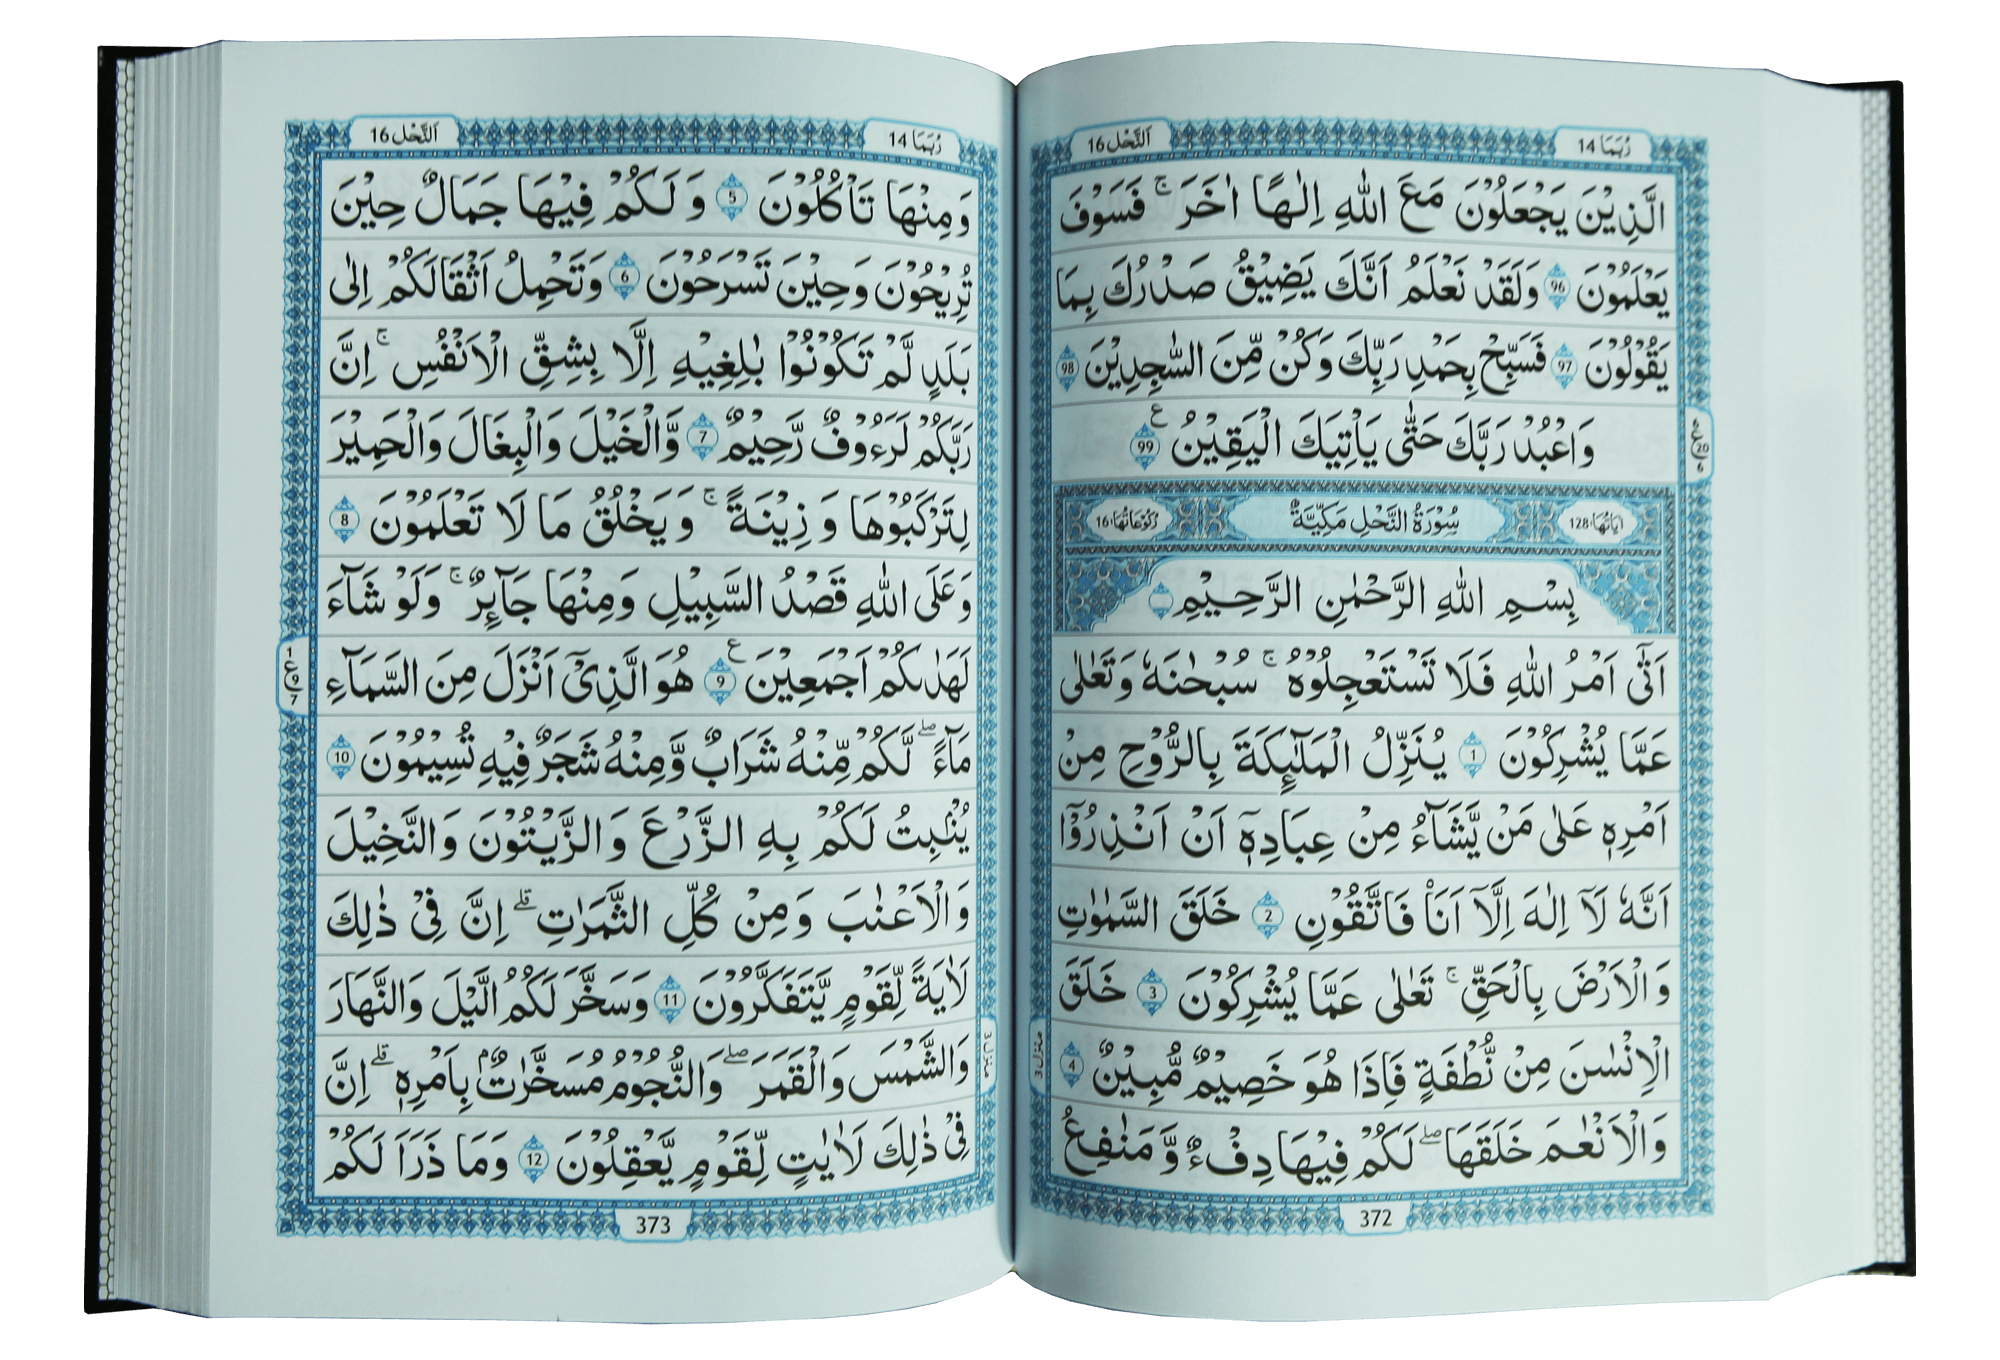 رُبَمَا 14
اَلنَّحْل 16
الَّذِيْنَ يَجْعَلُوْنَ مَعَ اللّٰهِ اِلٰهًا اٰخَرَ ۚ فَسَوْفَ
يَعْلَمُوْنَ 96 وَلَقَدْ نَعْلَمُ اَنَّكَ يَضِيْقُ صَدْرُكَ بِمَا
يَقُوْلُوْنَ 97 فَسَبِّحْ بِحَمْدِ رَبِّكَ وَكُنْ مِّنَ السّٰجِدِيْنَ 98
وَاعْبُدْ رَبَّكَ حَتّٰى يَاْتِيَكَ الْيَقِيْنُ ع 99
اٰيَاتُهَا: 128 سُوْرَةُ النَّحْلِ مَكِّيَّةٌ رُكُوْعَاتُهَا: 16
بِسْمِ اللّٰهِ الرَّحْمٰنِ الرَّحِيْمِ
اَتٰٓى اَمْرُ اللّٰهِ فَلَا تَسْتَعْجِلُوْهُ ۚ سُبْحٰنَهٗ وَتَعٰلٰى
عَمَّا يُشْرِكُوْنَ 1 يُنَزِّلُ الْمَلٰٓئِكَةَ بِالرُّوْحِ مِنْ
اَمْرِهٖ عَلٰى مَنْ يَّشَآءُ مِنْ عِبَادِهٖٓ اَنْ اَنْذِرُوْٓا
اَنَّهٗ لَآ اِلٰهَ اِلَّآ اَنَا۠ فَاتَّقُوْنِ 2 خَلَقَ السَّمٰوٰتِ
وَالْاَرْضَ بِالْحَقِّ ۚ تَعٰلٰى عَمَّا يُشْرِكُوْنَ 3 خَلَقَ
الْاِنْسٰنَ مِنْ نُّطْفَةٍ فَاِذَا هُوَ خَصِيْمٌ مُّبِيْنٌ 4
وَالْاَنْعٰمَ خَلَقَهَا ۖ لَكُمْ فِيْهَا دِفْءٌ وَّمَنٰفِعُ
منزل 3
372
رُبَمَا 14
اَلنَّحْل 16
وَمِنْهَا تَاْكُلُوْنَ 5 وَلَكُمْ فِيْهَا جَمَالٌ حِيْنَ
تُرِيْحُوْنَ وَحِيْنَ تَسْرَحُوْنَ 6 وَتَحْمِلُ اَثْقَالَكُمْ اِلٰى
بَلَدٍ لَّمْ تَكُوْنُوْا بٰلِغِيْهِ اِلَّا بِشِقِّ الْاَنْفُسِ ۚ اِنَّ
رَبَّكُمْ لَرَءُوْفٌ رَّحِيْمٌ 7 وَّالْخَيْلَ وَالْبِغَالَ وَالْحَمِيْرَ
لِتَرْكَبُوْهَا وَزِيْنَةً ۚ وَيَخْلُقُ مَا لَا تَعْلَمُوْنَ 8
وَعَلَى اللّٰهِ قَصْدُ السَّبِيْلِ وَمِنْهَا جَآئِرٌ ۚ وَلَوْ شَآءَ
لَهَدٰىكُمْ اَجْمَعِيْنَ ع 9 هُوَ الَّذِيْٓ اَنْزَلَ مِنَ السَّمَآءِ
مَآءً ۖ لَّكُمْ مِّنْهُ شَرَابٌ وَّمِنْهُ شَجَرٌ فِيْهِ تُسِيْمُوْنَ 10
يُنْۢبِتُ لَكُمْ بِهِ الزَّرْعَ وَالزَّيْتُوْنَ وَالنَّخِيْلَ
وَالْاَعْنٰبَ وَمِنْ كُلِّ الثَّمَرٰتِ ۗ اِنَّ فِيْ ذٰلِكَ
لَاٰيَةً لِّقَوْمٍ يَّتَفَكَّرُوْنَ 11 وَسَخَّرَ لَكُمُ الَّيْلَ وَالنَّهَارَ
وَالشَّمْسَ وَالْقَمَرَ ۖ وَالنُّجُوْمُ مُسَخَّرٰتٌۢ بِاَمْرِهٖ ۗ اِنَّ
فِيْ ذٰلِكَ لَاٰيٰتٍ لِّقَوْمٍ يَّعْقِلُوْنَ 12 وَمَا ذَرَاَ لَكُمْ
منزل 3
373